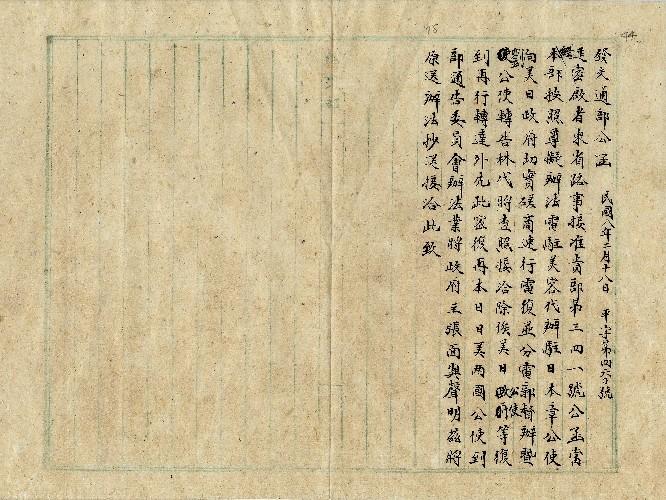 44
發交通部公函　民國八年二月十八日　平字第四六〇號
逕密啟者東省路事接准貴部第三四一號公函當經
本部按照尊擬辦法電駐美容代辦駐日本章公使
向美日政府切實磋商速行電復並分電郭督辦暨
劉公使轉告林代將查照接洽除俟美日公使等復
到再行轉達外允此密復再本日日美兩國公使到
部通告委員會辦法業將政府主張面與聲明茲將
原送辦法抄送接洽此致